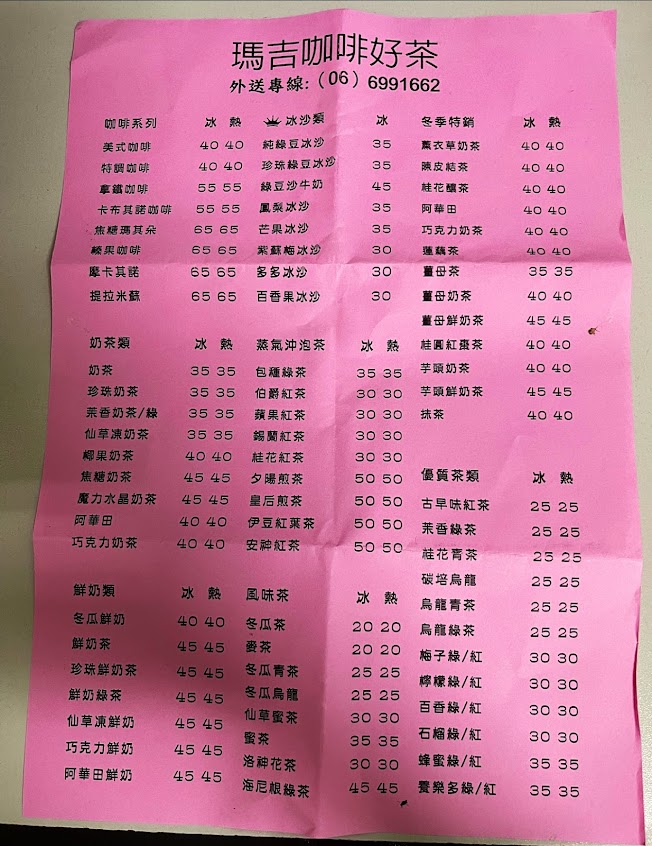 瑪吉咖啡好茶
外送專線:（06）6991662
咖啡系列 冰 熱
美式咖啡 40 40
特調咖啡 40 40
拿鐵咖啡 55 55
卡布其諾咖啡 55 55
焦糖瑪其朵 65 65
榛果咖啡 65 65
摩卡其諾 65 65
提拉米蘇 65 65
奶茶類 冰 熱
奶茶 35 35
珍珠奶茶 35 35
茉香奶茶/綠 35 35
仙草凍奶茶 35 35
椰果奶茶 40 40
焦糖奶茶 45 45
魔力水晶奶茶 45 45
阿華田 40 40
巧克力奶茶 40 40
鮮奶類 冰 熱
冬瓜鮮奶 40 40
鮮奶茶 45 45
珍珠鮮奶茶 45 45
鮮奶綠茶 45 45
仙草凍鮮奶 45 45
巧克力鮮奶 45 45
阿華田鮮奶 45 45
冰沙類 冰
純綠豆冰沙 35
珍珠綠豆冰沙 35
綠豆沙牛奶 45
鳳梨冰沙 35
芒果冰沙 35
紫蘇梅冰沙 30
多多冰沙 30
百香果冰沙 30
蒸氣沖泡茶 冰 熱
包種綠茶 35 35
伯爵紅茶 30 30
蘋果紅茶 30 30
錫蘭紅茶 30 30
桂花紅茶 30 30
夕陽煎茶 50 50
皇后煎茶 50 50
伊豆紅葉茶 50 50
安神紅茶 50 50
風味茶 冰 熱
冬瓜茶 20 20
麥茶 20 20
冬瓜青茶 25 25
冬瓜烏龍 25 25
仙草蜜茶 30 30
蜜茶 35 35
洛神花茶 30 30
海尼根綠茶 45 45
冬季特銷 冰 熱
薰衣草奶茶 40 40
陳皮桔茶 40 40
桂花釀茶 40 40
阿華田 40 40
巧克力奶茶 40 40
蓮藕茶 40 40
薑母茶 35 35
薑母奶茶 40 40
薑母鮮奶茶 45 45
桂圓紅棗茶 40 40
芋頭奶茶 40 40
芋頭鮮奶茶 45 45
抹茶 40 40
優質茶類 冰 熱
古早味紅茶 25 25
茉香綠茶 25 25
桂花青茶 25 25
碳培烏龍 25 25
烏龍青茶 25 25
烏龍綠茶 25 25
梅子綠/紅 30 30
檸檬綠/紅 30 30
百香綠/紅 30 30
石榴綠/紅 30 30
蜂蜜綠/紅 35 35
養樂多綠/紅 35 35